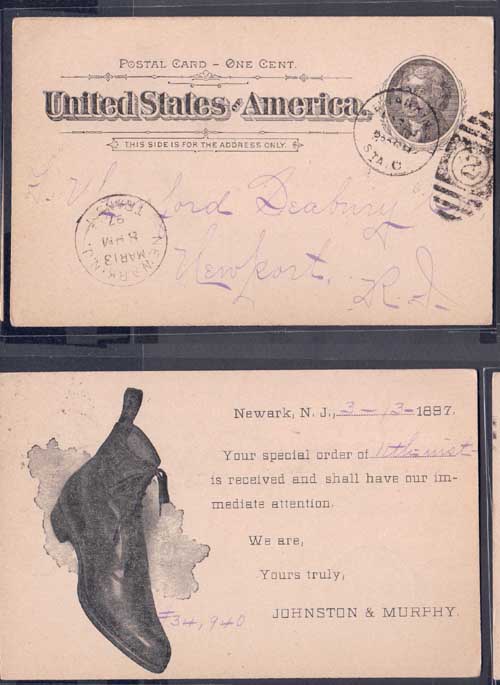 POSTAL CARD – ONE CENT.
United States of America.
THIS SIDE IS FOR THE ADDRESS ONLY.
STA. C
2
NEWARK, N.J.
MAR 13
8 PM
97
TRANSIT
Newport,
R. I.
Newark, N. J., 3–13–1897.
Your special order of 11th inst
is received and shall have our im-
mediate attention.
We are,
Yours truly,
JOHNSTON & MURPHY.
#34,940